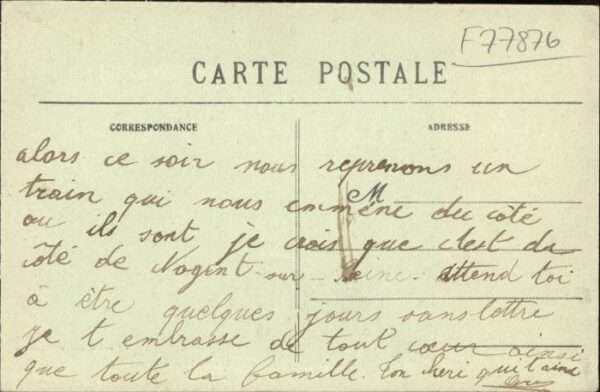 F77876
CARTE POSTALE
CORRESPONDANCE
ADRESSE
alors ce soir nous reprenons un
M
train qui nous emmène du côté
ou ils sont je crois que c'est du
côté de Nogent-sur-Seine. attend toi
à être quelques jours sans lettre
je t embrasse de tout cœur ainsi
que toute la famille. Ton chéri qui t'aime